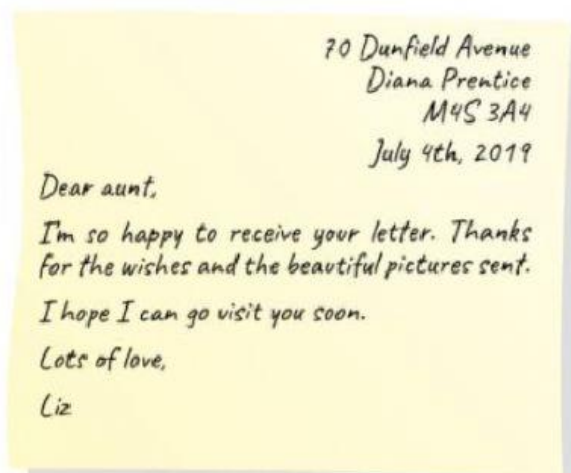 70 Dunfield Avenue
Diana Prentice
M4S 3A4
July 4th, 2019
Dear aunt,
I'm so happy to receive your letter. Thanks
for the wishes and the beautiful pictures sent.
I hope I can go visit you soon.
Lots of love,
Liz